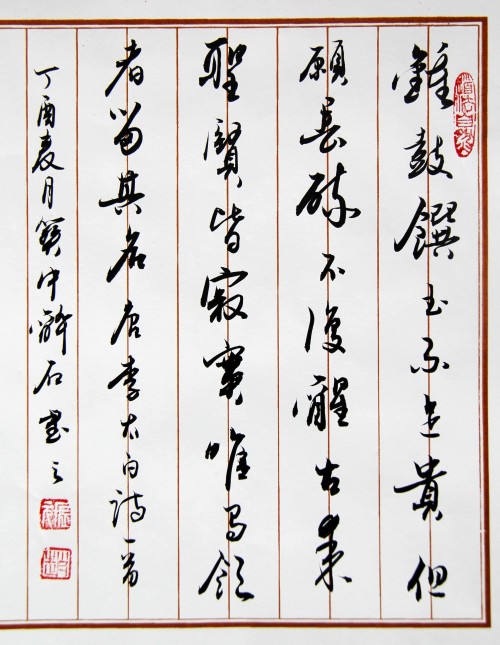 道法自然
鍾鼓饌玉不足貴但
願長醉不復醒古來
聖賢皆寂寞唯有飲
者留其名唐李太白詩一首
丁酉夏月冀中醉石書之